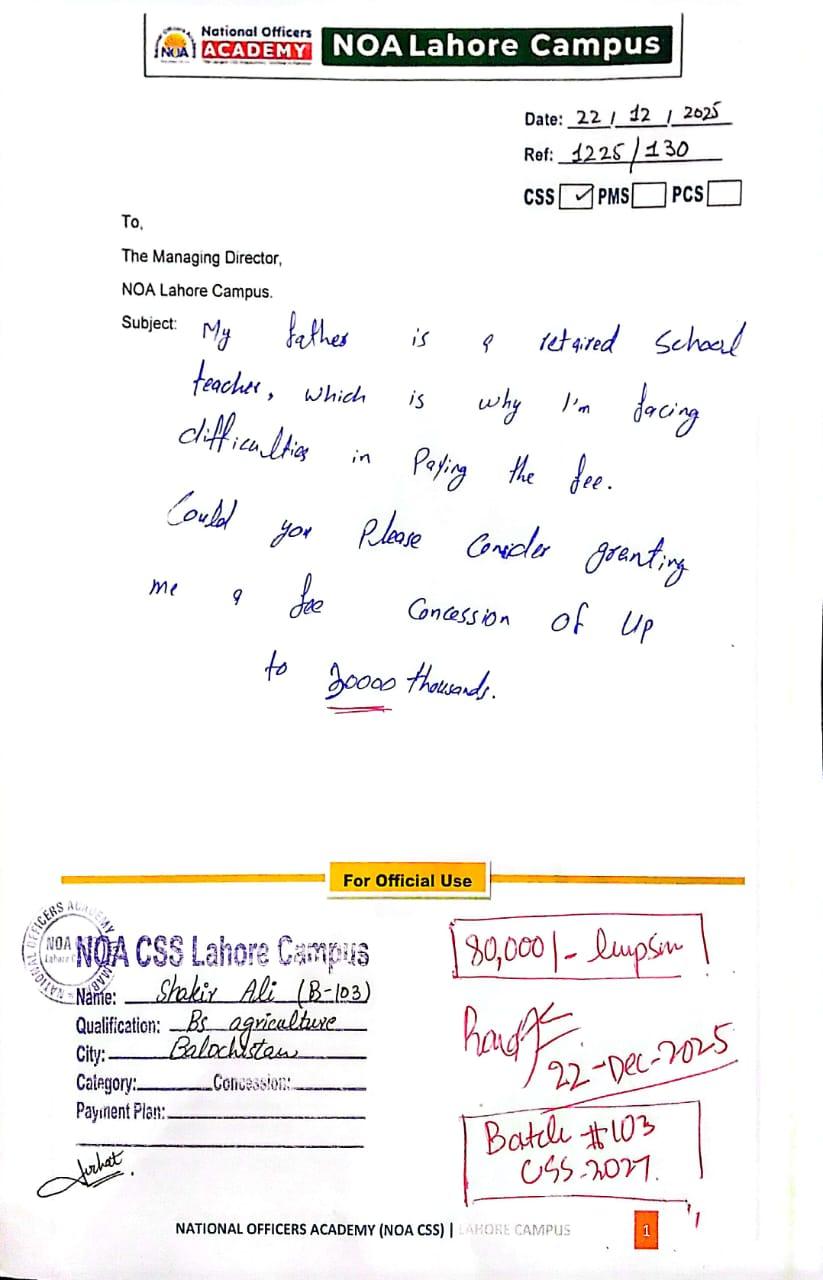 National Officers
ACADEMY
NOA
NOA Lahore Campus
Date: 22 / 12 / 2025
Ref: 1225/130
CSS ✓ PMS PCS
To,
The Managing Director,
NOA Lahore Campus.
Subject: My father is a retaired School
teacher, which is why I'm facing
difficulties in Paying the fee.
Could you Please Consider granting
me a fee Concession of Up
to 20000 thousands.
For Official Use
NOA CSS Lahore Campus
Name: Shakir Ali (B-103)
Qualification: Bs agriculture
City: Balochistan
Category: Concession:
Payment Plan:
80,000/- lumpsum
22-Dec-2025
Batch #103
CSS-2027.
NATIONAL OFFICERS ACADEMY (NOA CSS) | LAHORE CAMPUS
1